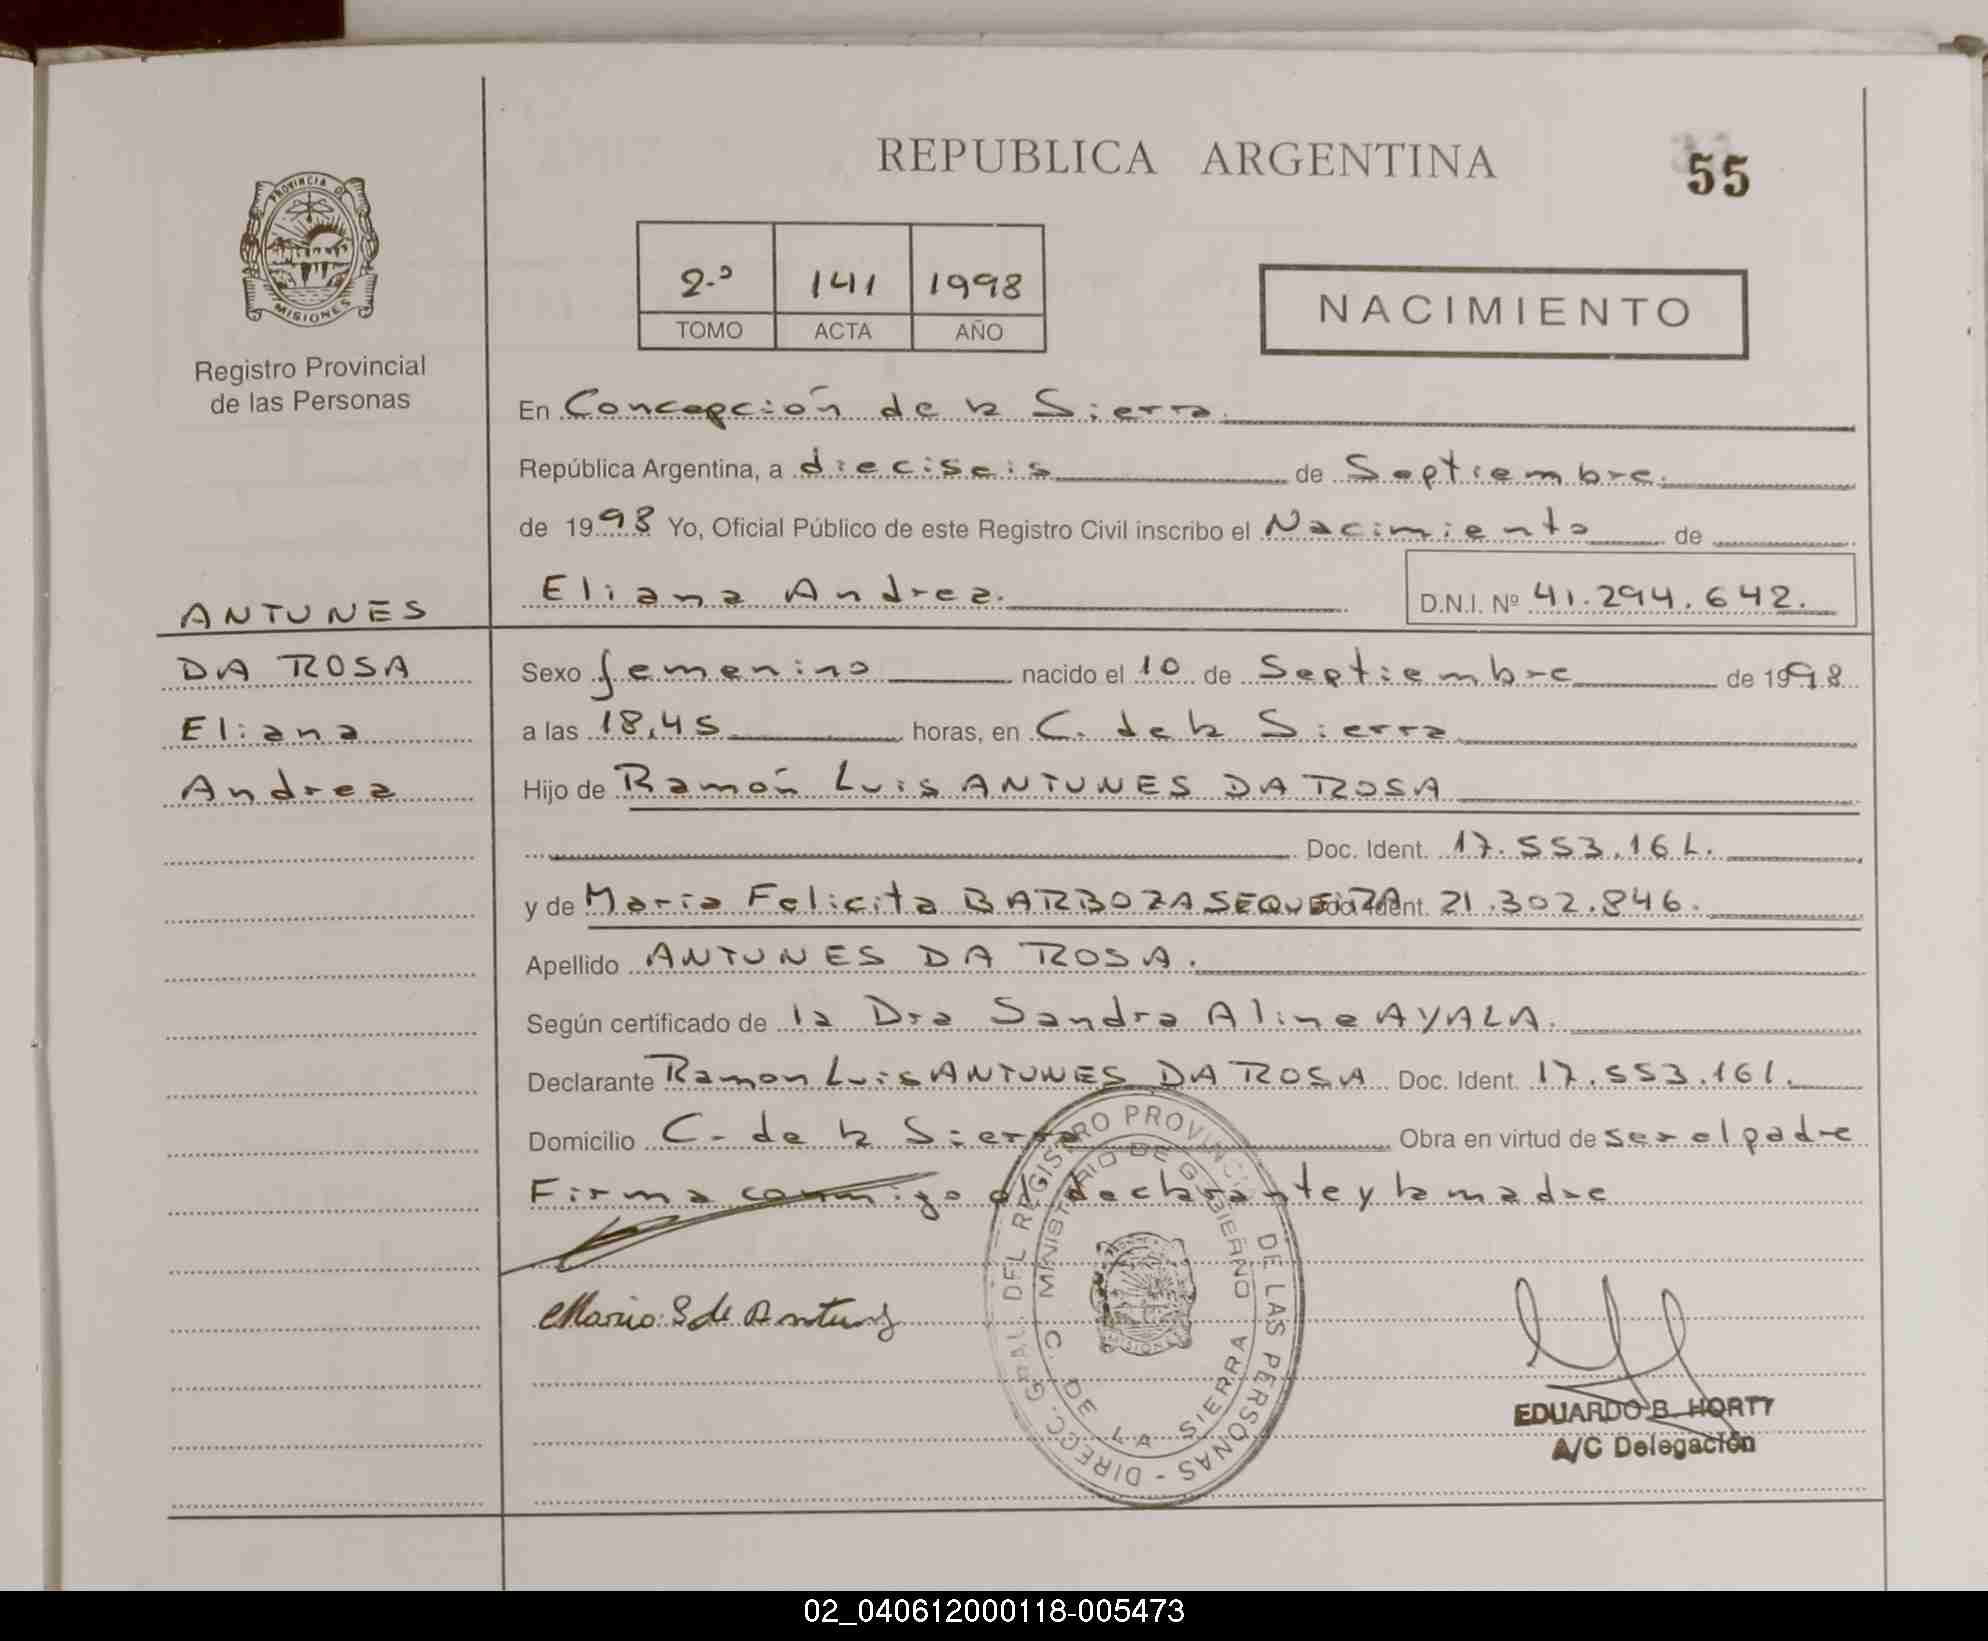 REPUBLICA ARGENTINA
55
PROVINCIA DE
MISIONES
Registro Provincial
de las Personas
2.º 141 1998
TOMO ACTA AÑO
NACIMIENTO
En Concepción de la Sierra.
República Argentina, a dieciseis de Septiembre.
de 1998 Yo, Oficial Público de este Registro Civil inscribo el Nacimiento de
Eliana Andrea.
D.N.I. Nº 41.294.642.
ANTUNES
DA ROSA
Eliana
Andrea
Sexo femenino nacido el 10 de Septiembre de 1998
a las 18,45 horas, en C. de la Sierra
Hijo de Ramón Luis ANTUNES DA ROSA
Doc. Ident. 17.553.161.
y de María Felicita BARBOZA SEQUEIRA Doc. Ident. 21.302.846.
Apellido ANTUNES DA ROSA.
Según certificado de la Dra Sandra Aline AYALA.
Declarante Ramon Luis ANTUNES DA ROSA Doc. Ident. 17.553.161.
Domicilio C. de la Sierra Obra en virtud de ser el padre
Firma conmigo el declarante y la madre
Maria S de Antunes
DIRECC. GRAL. DEL REGISTRO PROVINCIAL DE LAS PERSONAS -
MINISTERIO DE GOBIERNO
C. DE LA SIERRA
MISIONES
EDUARDO B. HORTT
A/C Delegación
02_040612000118-005473